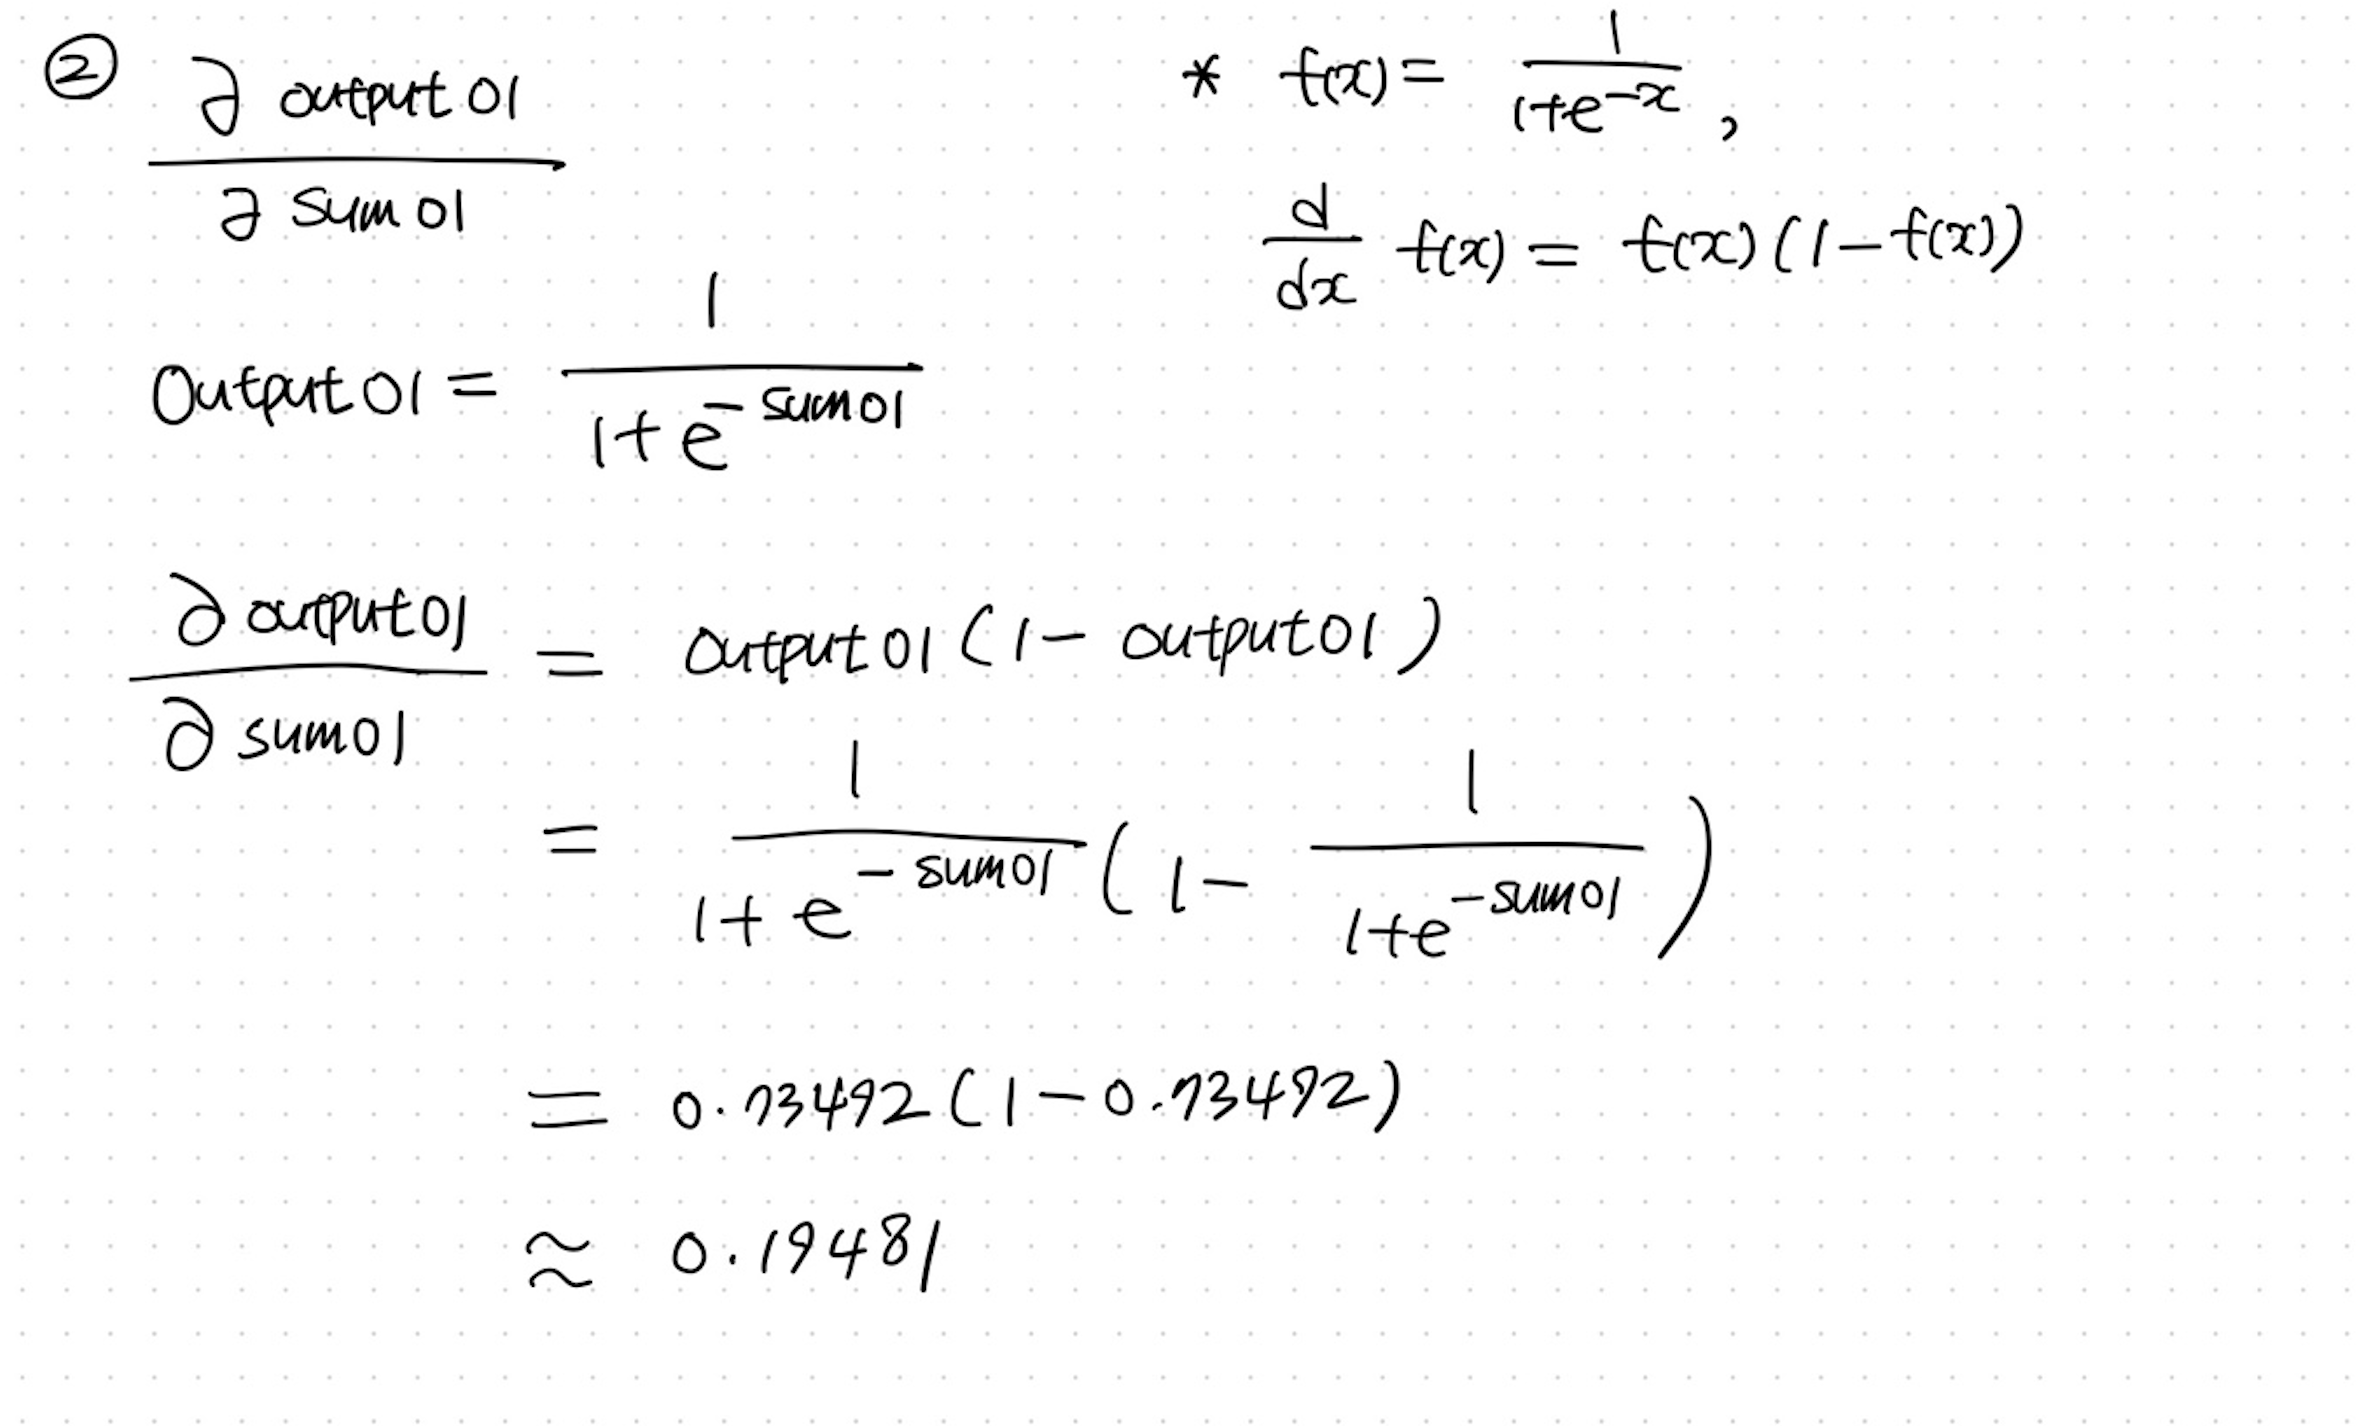 ② ∂ output o1 / ∂ sum o1
* f(x) = 1 / (1+e^-x) ,
d/dx f(x) = f(x) (1 - f(x))
Output o1 = 1 / (1+e^-sum o1)
∂ output o1 / ∂ sum o1 = output o1 (1 - output o1)
= 1 / (1+e^-sum o1) (1 - 1 / (1+e^-sum o1))
= 0.73492 (1 - 0.73492)
≈ 0.19481